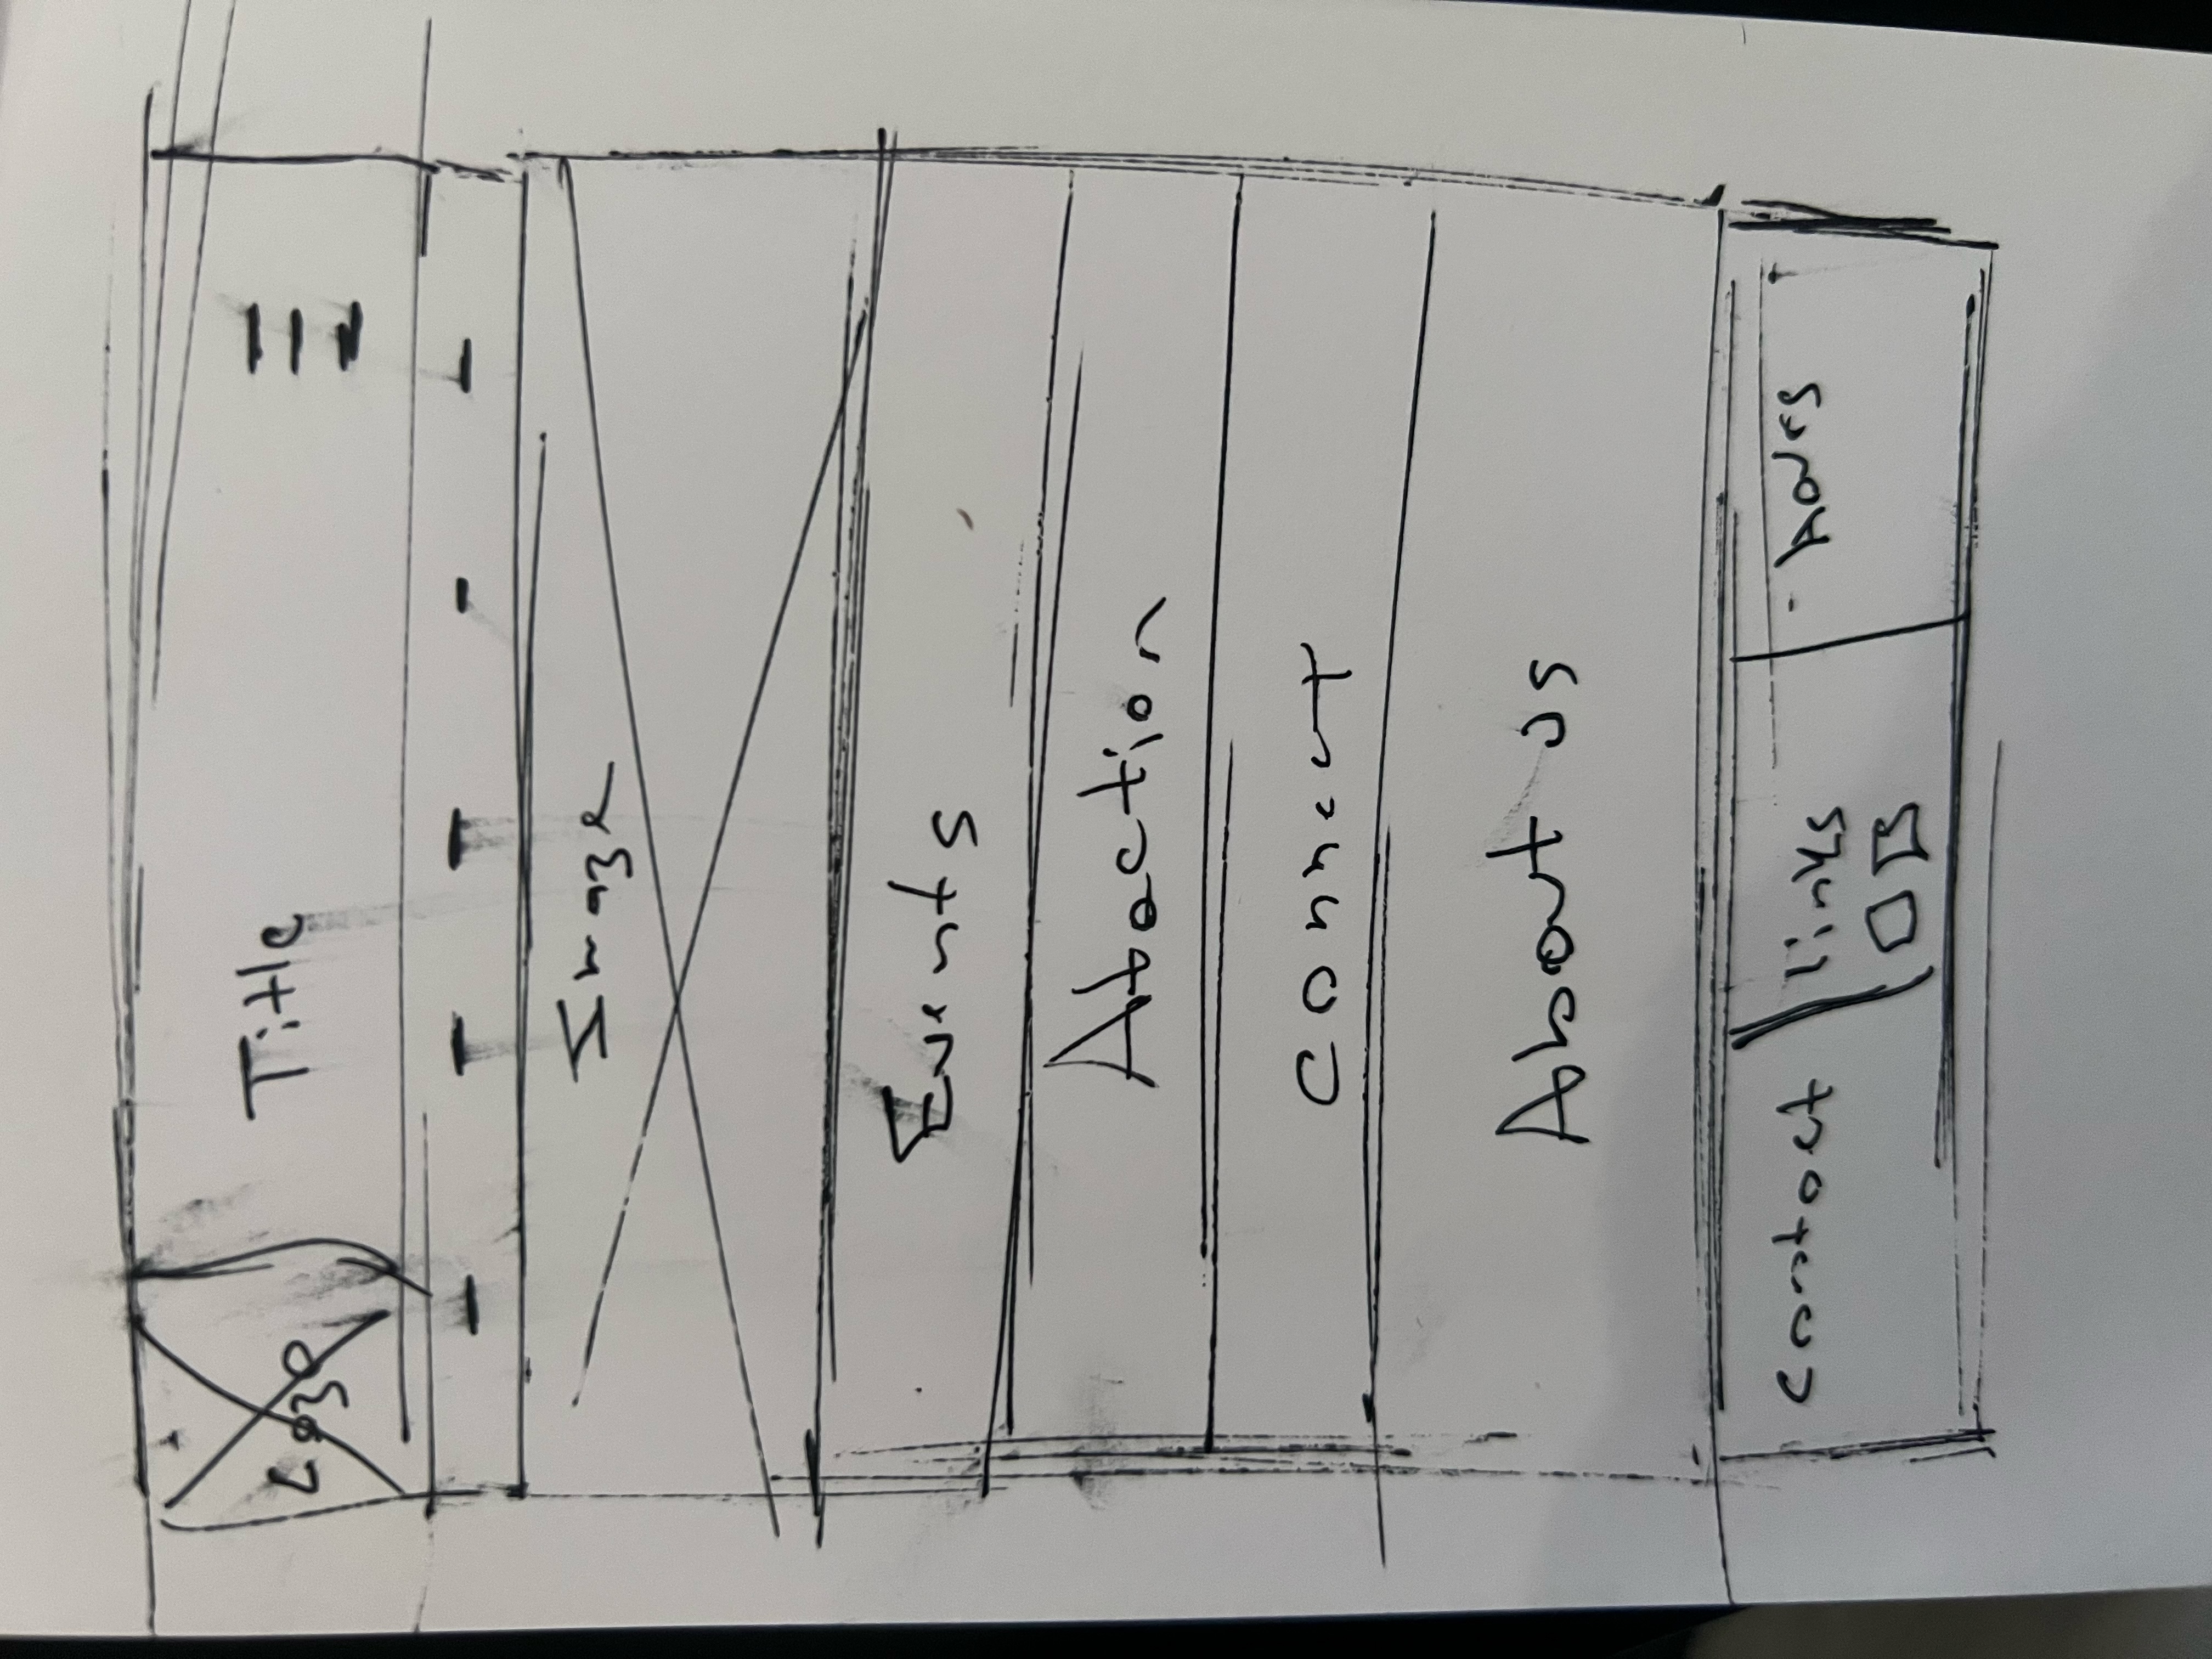 Logo
Title
Image
Events
Ataction
Connect
About us
Contact
links
hours